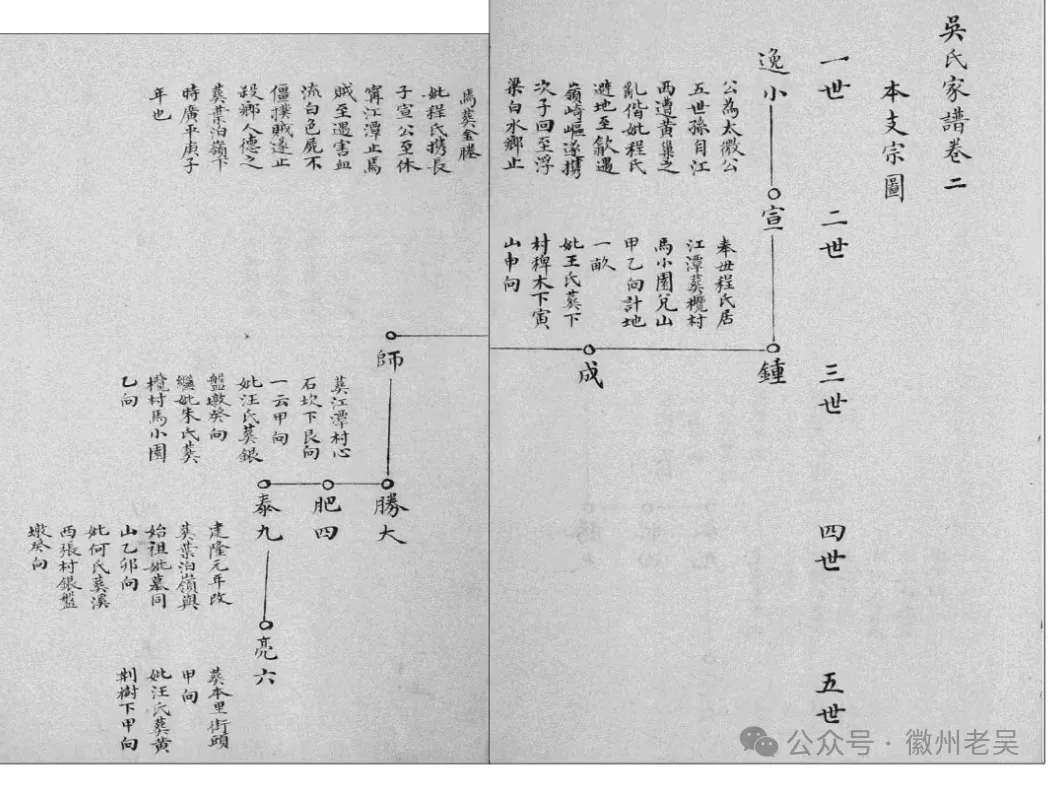 吳氏家譜卷二
本支宗圖
一世
二世
三世
四世
五世
逸小
公為太微公
五世孫自江
西遭黃巢之
亂偕妣程氏
避地至歙遇
嶺崎嶇遂攜
次子回至浮
梁白水鄉止
焉葬金塍
妣程氏攜長
子宣公至休
寧江潭止焉
賊至遇害血
流白色屍不
僵撲賊遂止
殺鄉人德之
葬葉泊嶺下
時廣平庚子
年也
宣一
奉母程氏居
江潭葬欖村
馬小園兌山
甲乙向計地
一畝
妣王氏葬下
村稗木下寅
山申向
鍾
成
師
葬江潭村心
石坎下艮向
一云甲向
妣汪氏葬銀
盤墩癸向
繼妣朱氏葬
欖村馬小園
乙向
勝大
肥四
泰九
建隆元年改
葬葉泊嶺與
始祖妣墓同
山乙卯向
妣何氏葬溪
西張村銀盤
墩癸向
亮六
葬本里街頭
甲向
妣汪氏葬黃
荆樹下甲向
公众号·徽州老吴